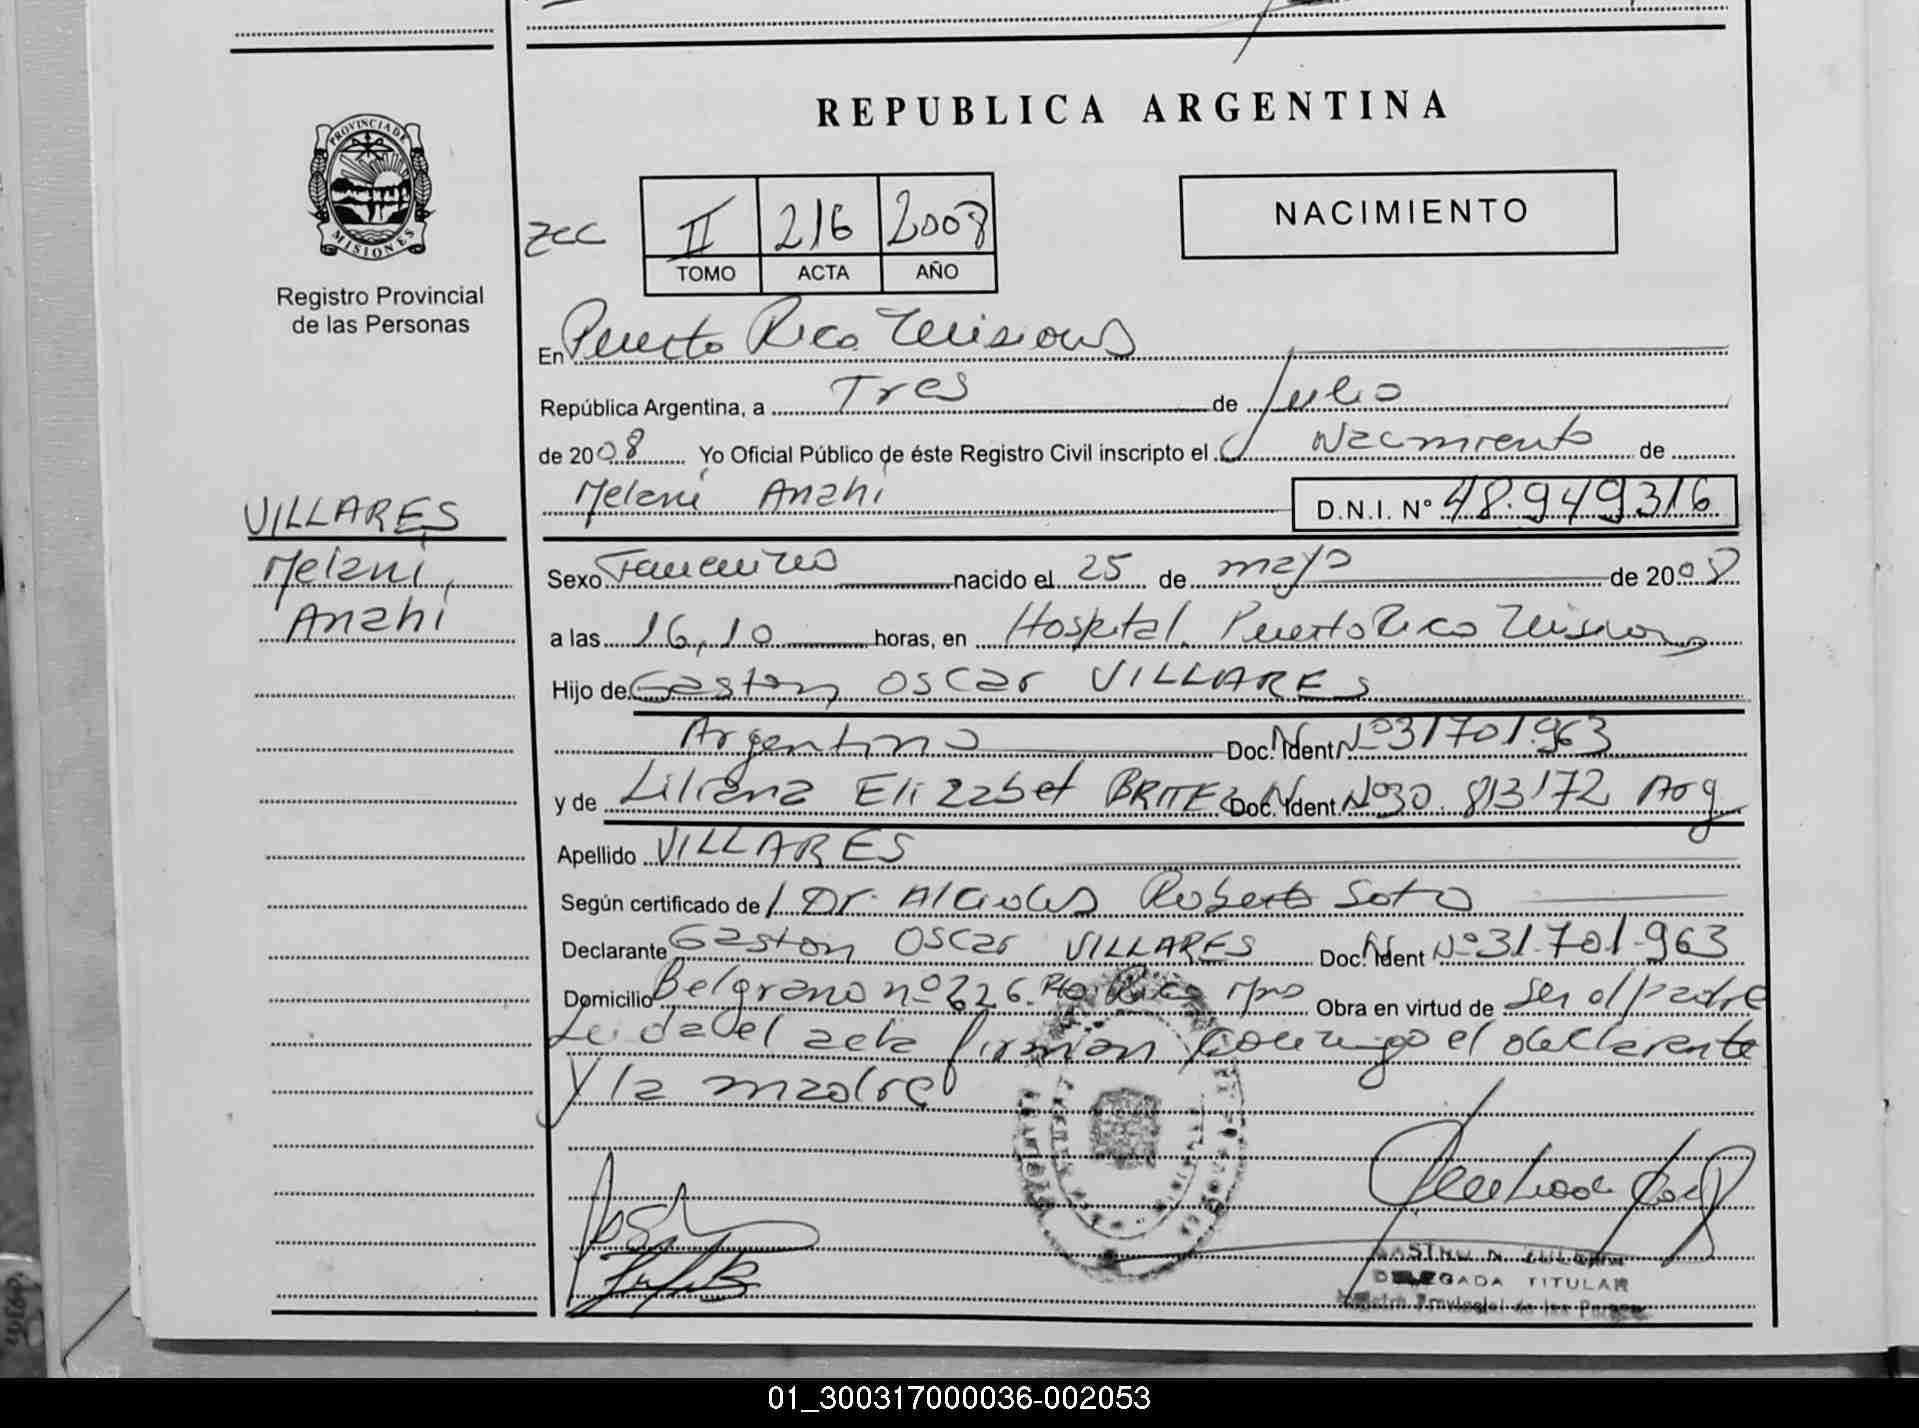 REPUBLICA ARGENTINA
PROVINCIA DE MISIONES
Registro Provincial
de las Personas
II 216 2008
TOMO ACTA AÑO
NACIMIENTO
En Puerto Rico Misiones
República Argentina, a Tres de Julio
de 2008 Yo Oficial Público de éste Registro Civil inscripto el Nacimiento de
Melani Anahi D.N.I. Nº 48.949316
VILLARES
Melani,
Anahi
Sexo Femenino nacido el 25 de mayo de 2008
a las 16,10 horas, en Hospital Puerto Rico Misiones
Hijo de Gaston Oscar VILLARES
Argentino Doc. Ident Nº 31701.963
y de Liliana Elizabet BRITEZ Doc. Ident. Nº 30.813172 Arg
Apellido VILLARES
Según certificado de Dr. Alcides Roberto Soto
Declarante Gaston Oscar VILLARES Doc. Ident Nº 31.701.963
Domicilio Belgrano nº 226. Pto Rico Mnes Obra en virtud de ser el padre
Leida el acta firman conmigo el declarante
y la madre
DELEGADA TITULAR
Registro Provincial de las Personas
01_300317000036-002053